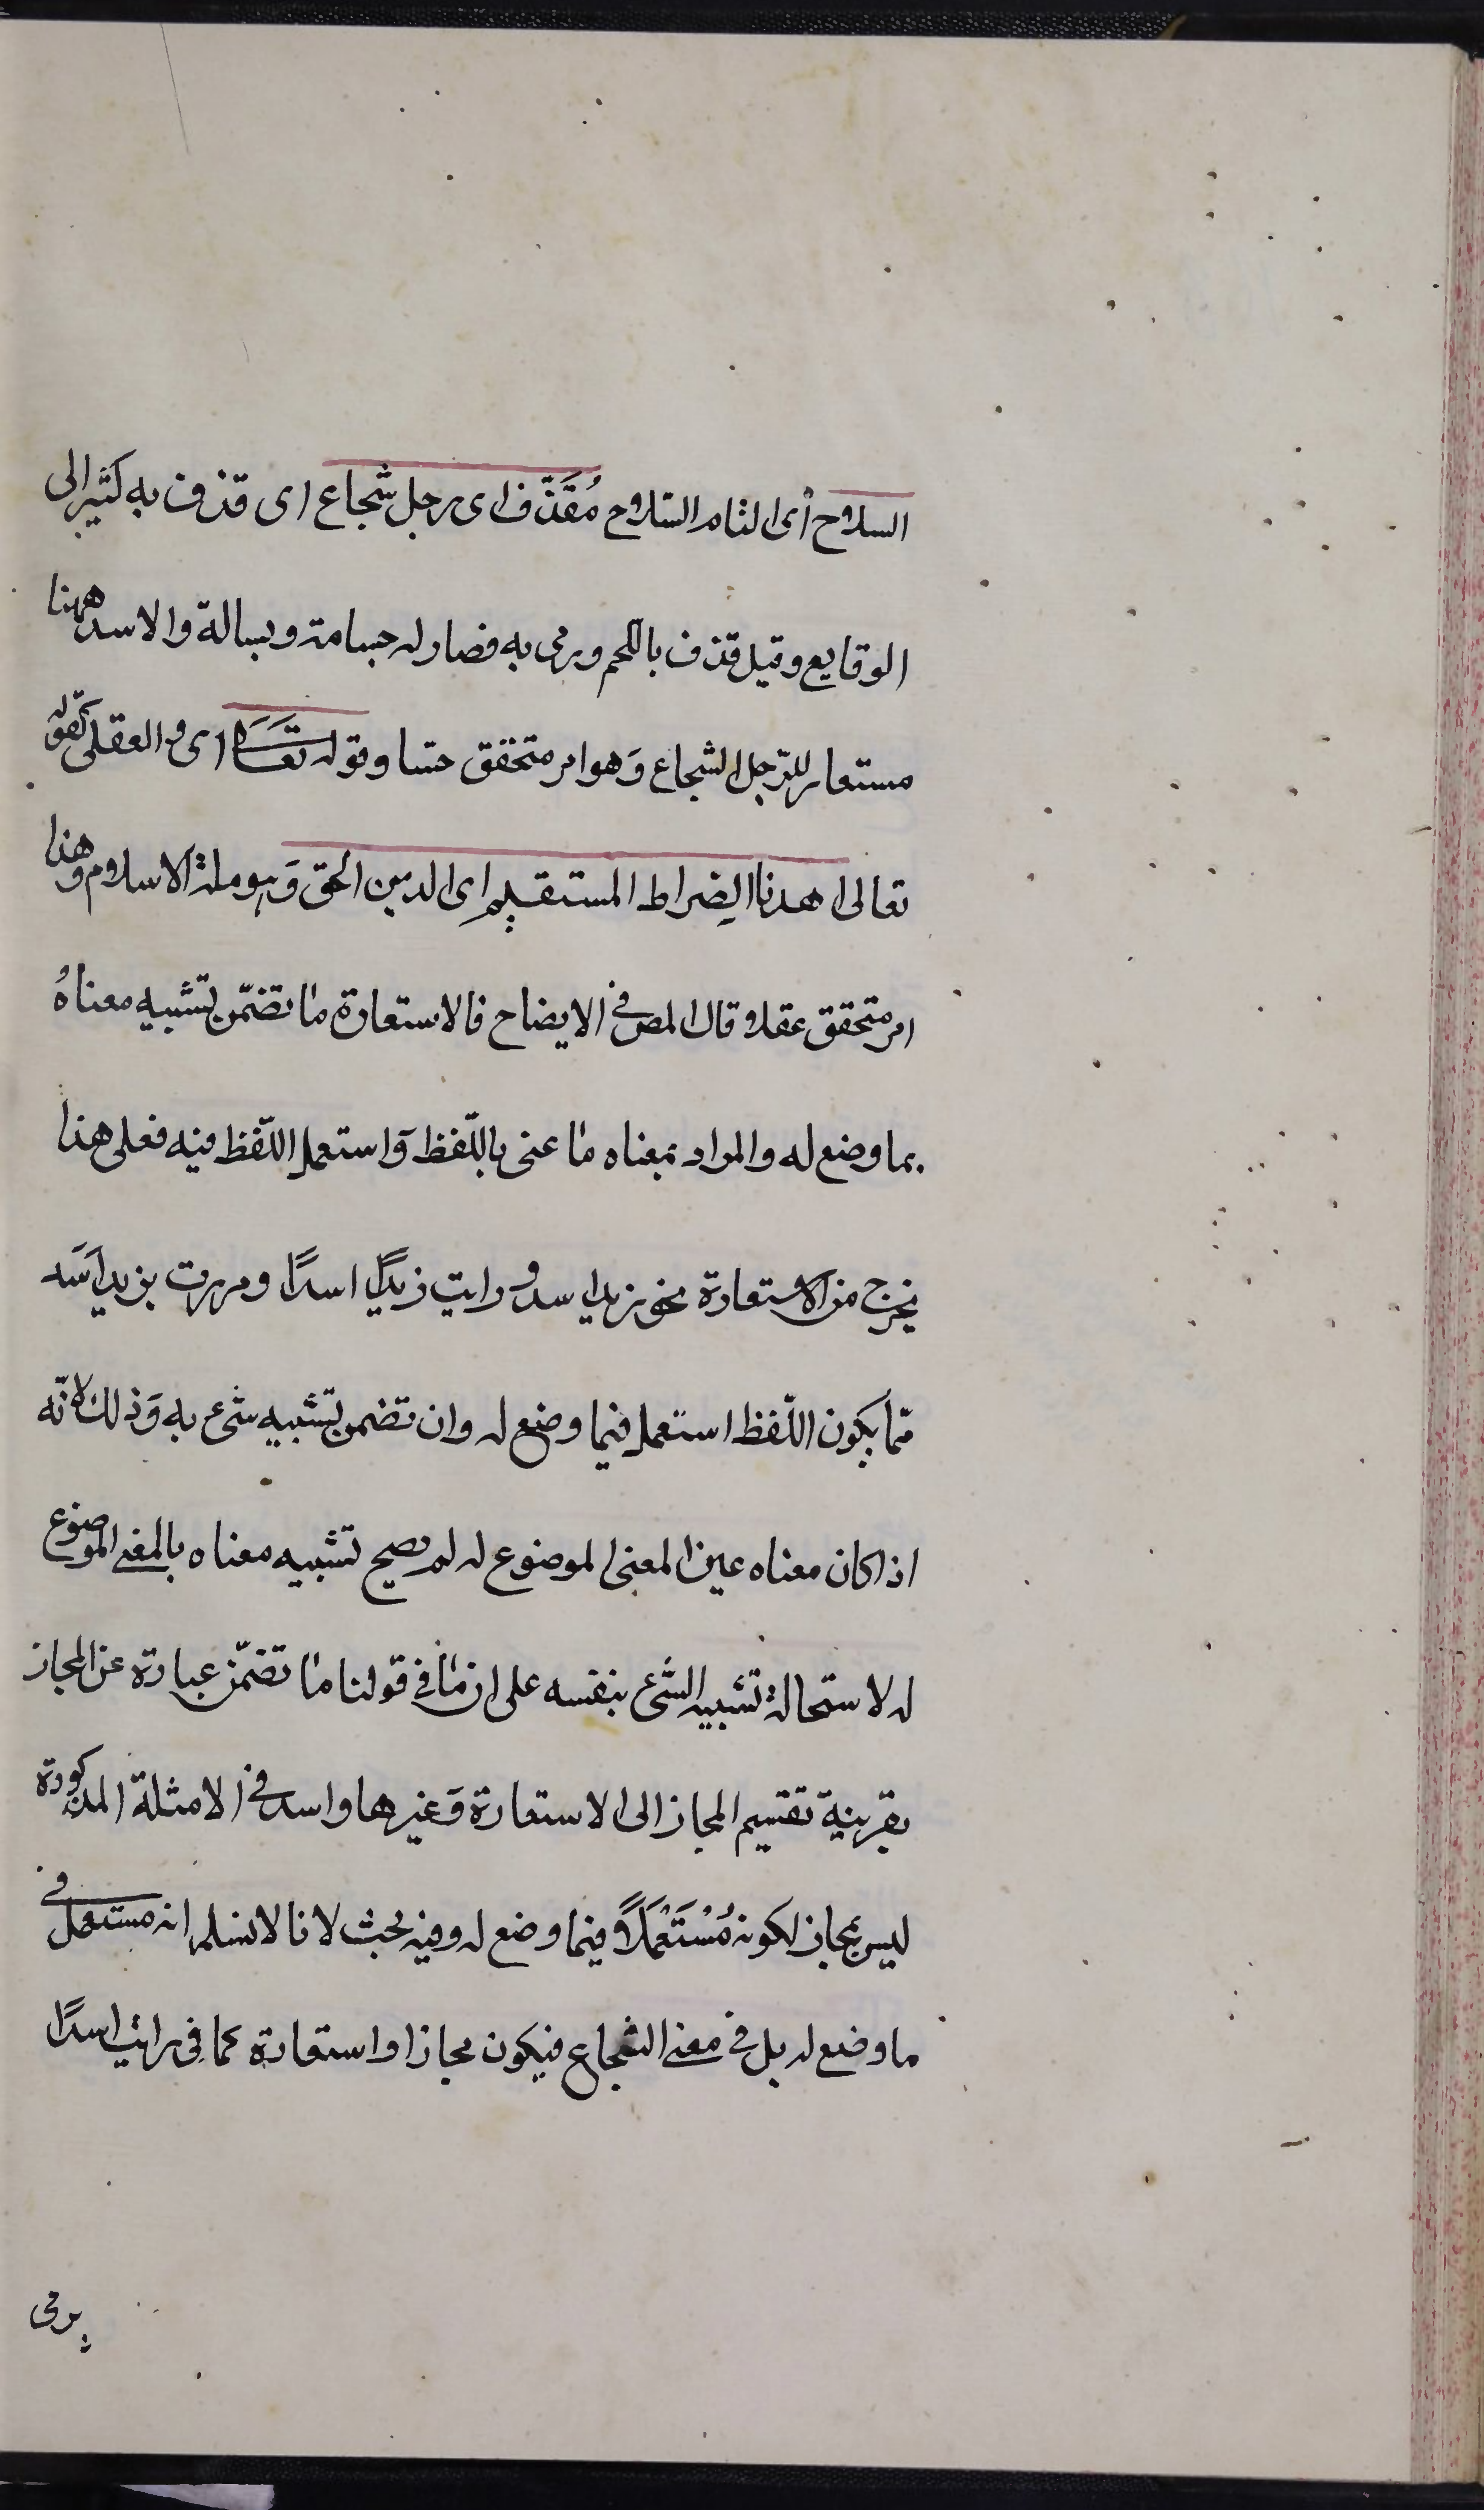 السلاح أى التام السلاح مُقَذَّف اى رجل شجاع اى قذف به كثيرا لى
الوقايع وقيل قذف باللحم ورمى به فصار له جسامة وبسالة والاسد ههنا
مستعار للرّجل الشجاع وَهو امر متحقق حسّا وقوله تعَالىَ اى والعقلى كقوله
تعالى اهدنا الصِراط المستقيم اى الدين الحق وَهو ملة الاسلام وهذا
امر متحقق عقلا وقال المص فى الايضاح فالاستعارة ما تضمّن تشبيه معناهُ
بما وضع له والمراد بمعناه ما عنى باللّفظ وَاستعمل اللّفظ فيه فعلى هذا
يخرج من الاستعارة نحو زيد اسد ورايت زيدًا اسدًا ومررت بزيد اَسَد
ممّا يكون اللّفظ استعمل فيما وضع له وان تضمن تشبيه شىء به وَذلك لانّه
اذا كان معناه عين المعنى الموضوع له لم يصح تشبيه معناه بالمعنى الموضوع
له لاستحالة تشبيه الشىء بنفسه على ان ما فى قولنا ما تضمّن عبارة عن المجاز
بقرينة تقسيم المجاز الى الاستعارة وَغيرها واسد فى الامثلة المذكورة
ليس بمجاز لكونه مُسْتَعْمَلًا فيما وضع له وفيه بحث لانا لا نسلم انه مستعمل فى
ما وضع له بل فى معنى الشجاع فيكون مجازا واستعارة كما فى رايت اسدًا
يرمى